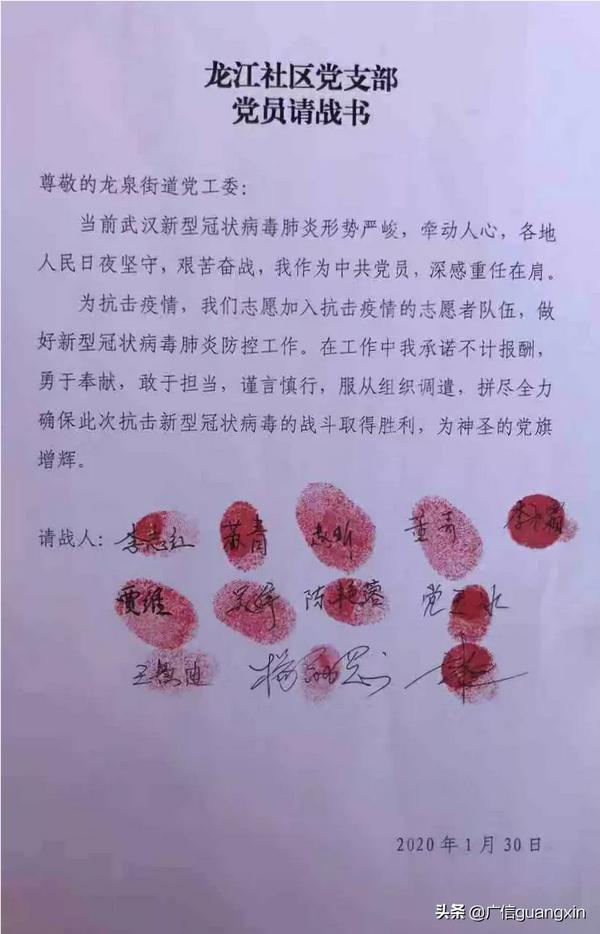 龙江社区党支部
党员请战书
尊敬的龙泉街道党工委：
当前武汉新型冠状病毒肺炎形势严峻，牵动人心，各地
人民日夜坚守，艰苦奋战，我作为中共党员，深感重任在肩。
为抗击疫情，我们志愿加入抗击疫情的志愿者队伍，做
好新型冠状病毒肺炎防控工作。在工作中我承诺不计报酬，
勇于奉献，敢于担当，谨言慎行，服从组织调遣，拼尽全力
确保此次抗击新型冠状病毒的战斗取得胜利，为神圣的党旗
增辉。
请战人：李志红 苏青 董奇
贾维 陈艳蓉
2020年1月30日
头条 @广信guangxin